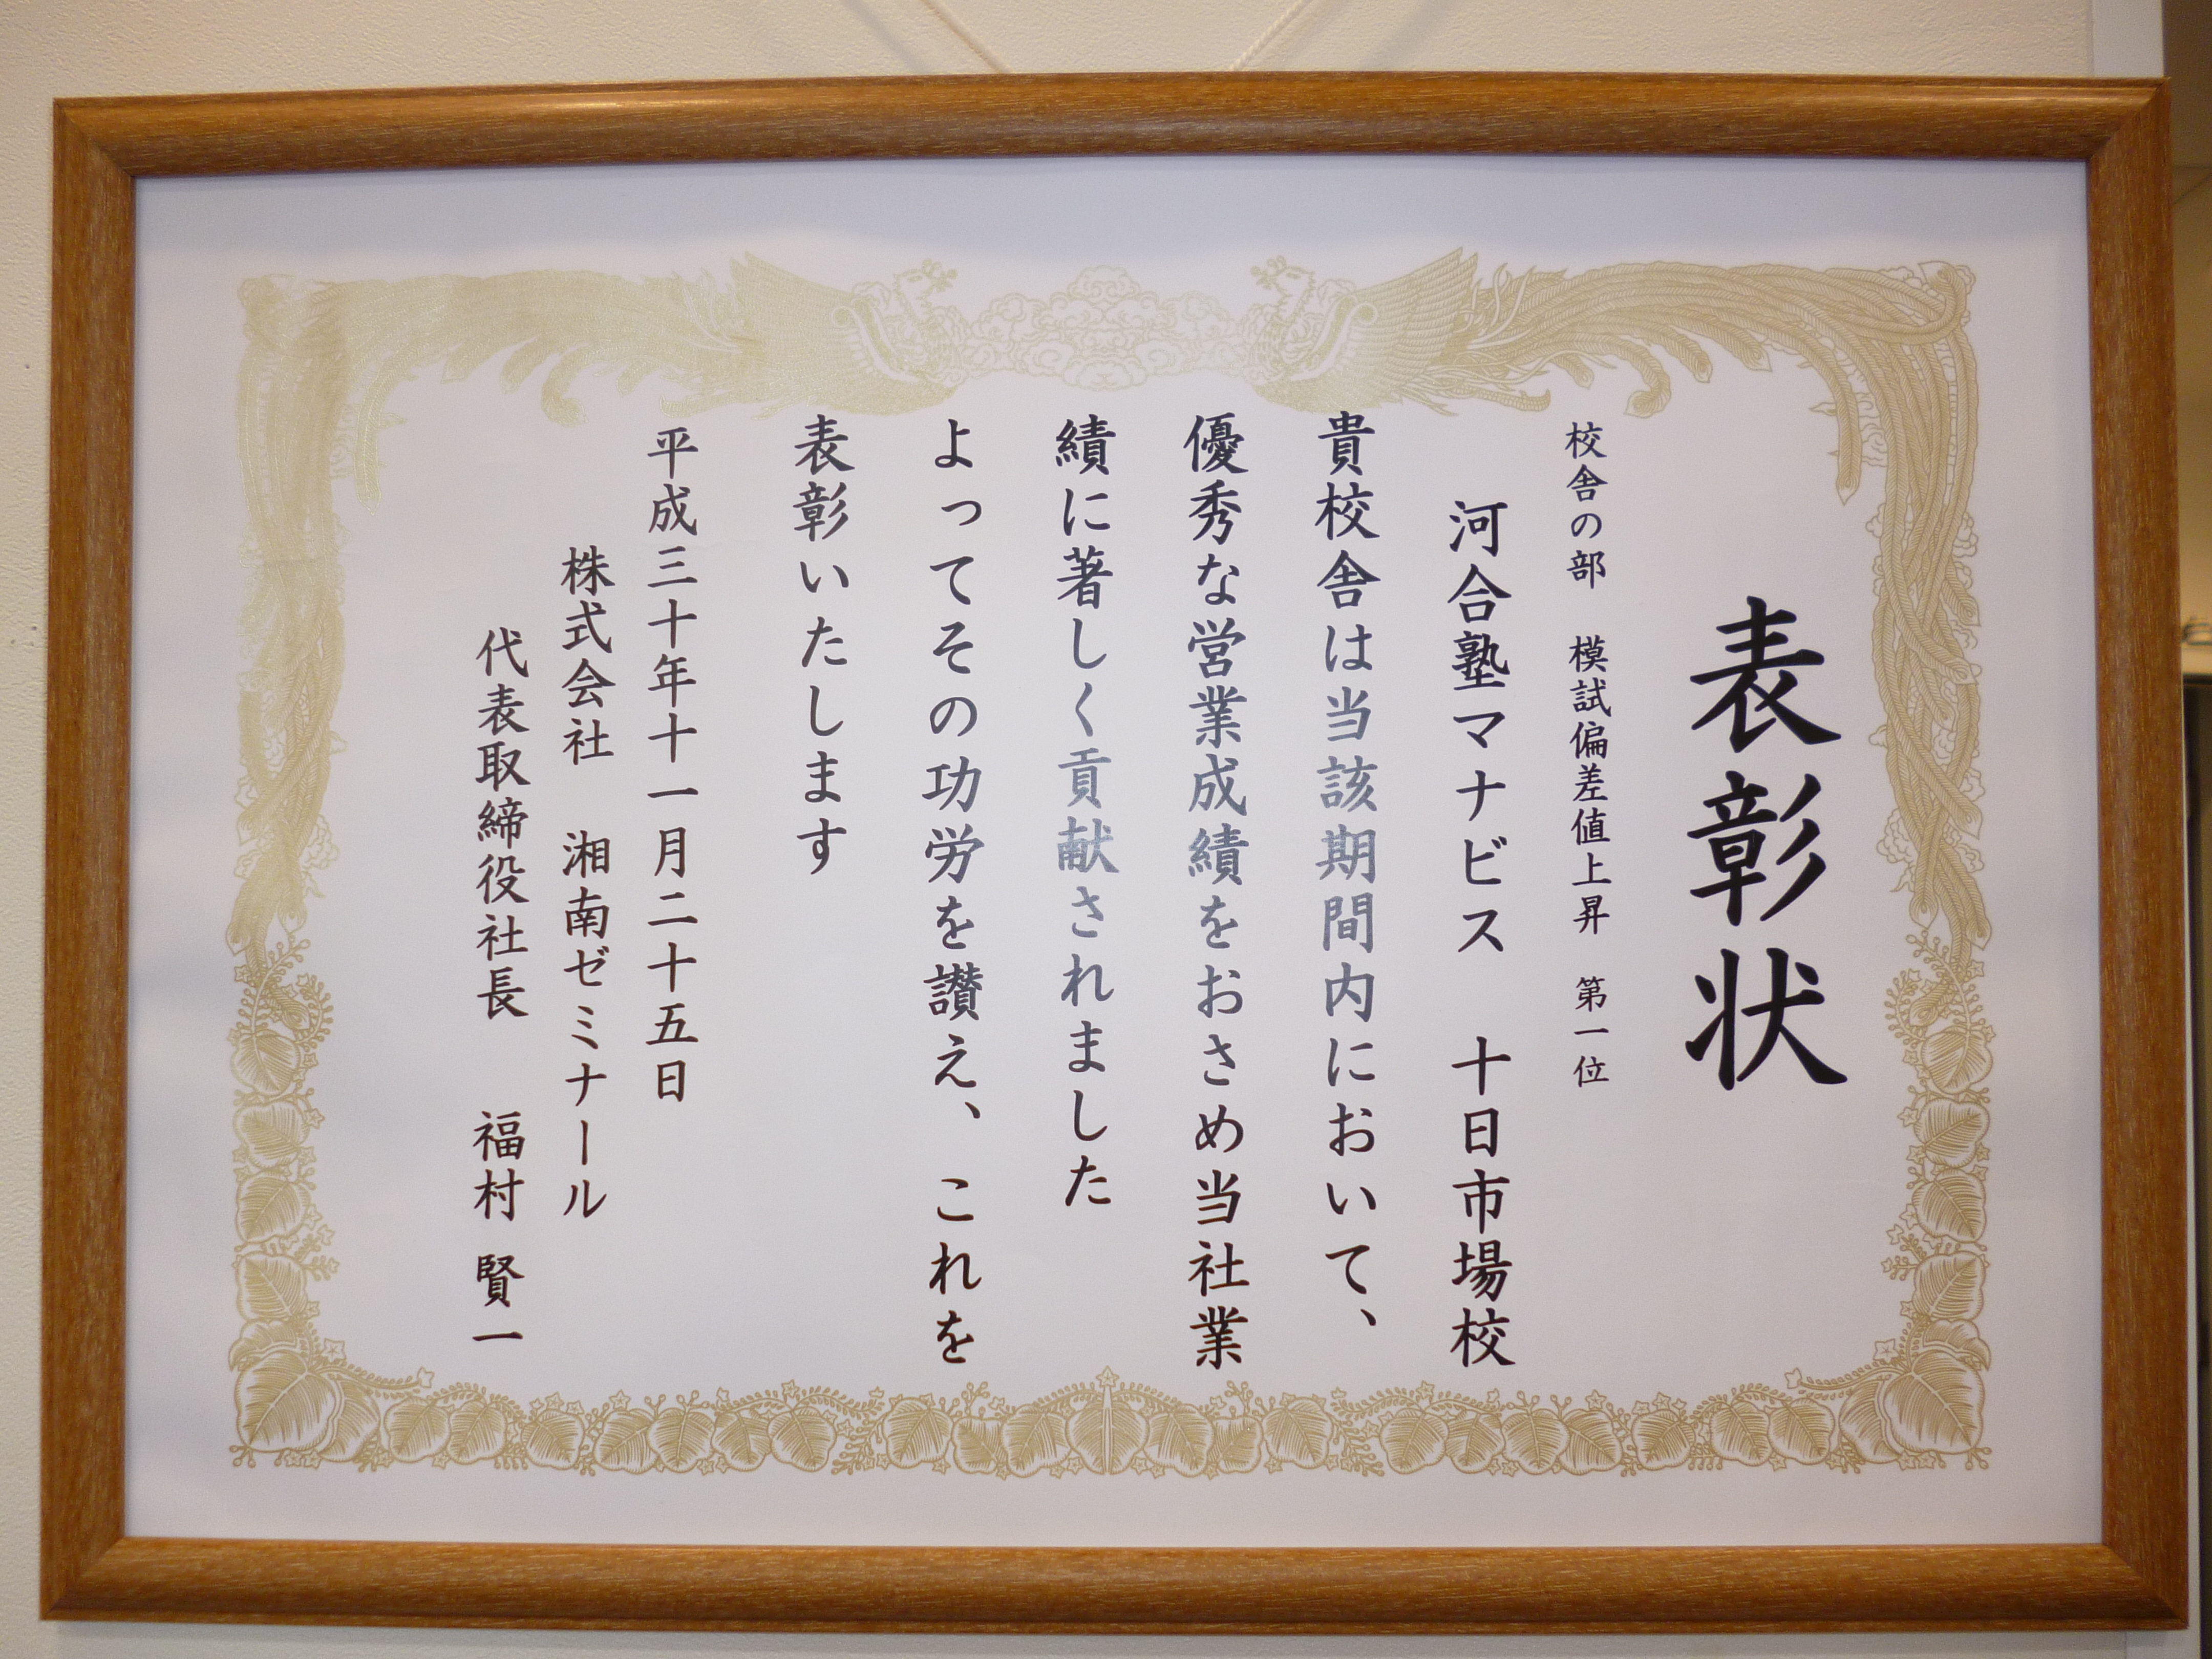 表彰状
校舎の部　模試偏差値上昇　第一位
河合塾マナビス　十日市場校
貴校舎は当該期間内において、
優秀な営業成績をおさめ当社業
績に著しく貢献されました
よってその功労を讃え、これを
表彰いたします
平成三十年十一月二十五日
株式会社　湘南ゼミナール
代表取締役社長　福村　賢一